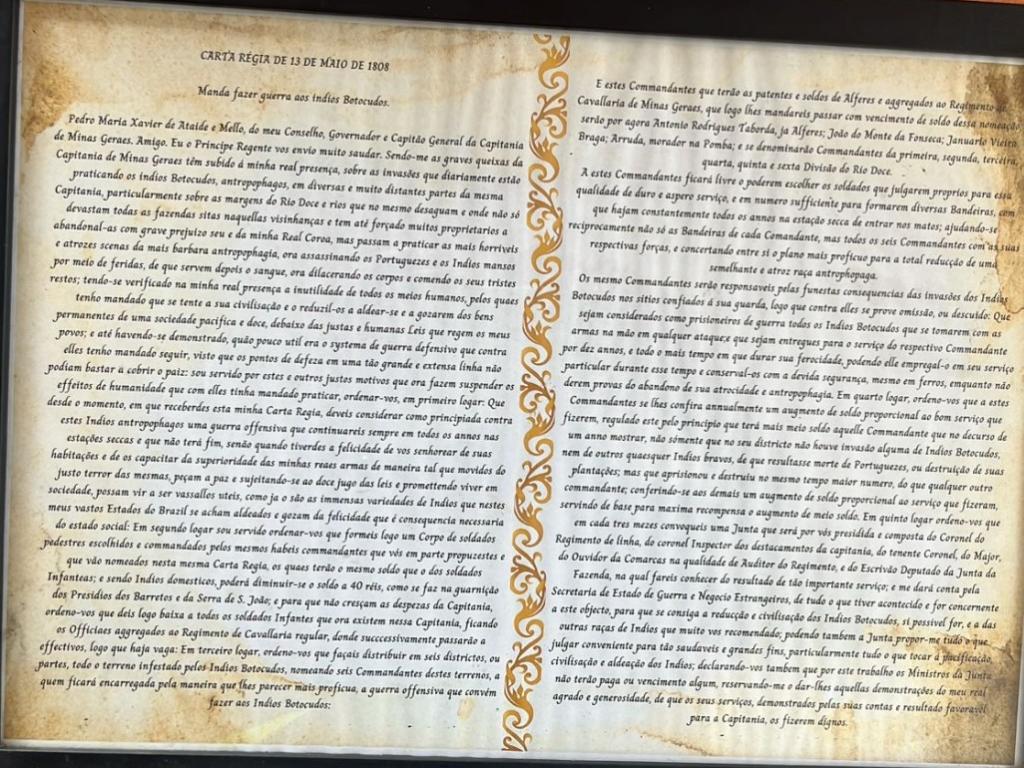 CARTA RÉGIA DE 13 DE MAIO DE 1808
Manda fazer guerra aos indios Botocudos.
Pedro Maria Xavier de Ataide e Mello, do meu Conselho, Governador e Capitão General da Capitania
de Minas Geraes. Amigo. Eu o Principe Regente vos envio muito saudar. Sendo-me as graves queixas da
Capitania de Minas Geraes têm subido á minha real presença, sobre as invasões que diariamente estão
praticando os indios Botocudos, antropophagos, em diversas e muito distantes partes da mesma
Capitania, particularmente sobre as margens do Rio Doce e rios que no mesmo desaguam e onde não só
devastam todas as fazendas sitas naquellas visinhanças e tem até forçado muitos proprietarios a
abandonal-as com grave prejuizo seu e da minha Real Coroa, mas passam a praticar as mais horriveis
e atrozes scenas da mais barbara antropophagia, ora assassinando os Portuguezes e os Indios mansos
por meio de feridas, de que servem depois o sangue, ora dilacerando os corpos e comendo os seus tristes
restos; tendo-se verificado na minha real presença a inutilidade de todos os meios humanos, pelos quaes
tenho mandado que se tente a sua civilisação e o reduzil-os a aldear-se e a gozarem dos bens
permanentes de uma sociedade pacifica e doce, debaixo das justas e humanas Leis que regem os meus
povos; e até havendo-se demonstrado, quão pouco util era o systema de guerra defensivo que contra
elles tenho mandado seguir, visto que os pontos de defeza em uma tão grande e extensa linha não
podiam bastar a cobrir o paiz: sou servido por estes e outros justos motivos que ora fazem suspender os
effeitos de humanidade que com elles tinha mandado praticar, ordenar-vos, em primeiro logar: Que
desde o momento, em que receberdes esta minha Carta Regia, deveis considerar como principiada contra
estes Indios antropophagos uma guerra offensiva que continuareis sempre em todos os annos nas
estações seccas e que não terá fim, senão quando tiverdes a felicidade de vos senhorear de suas
habitações e de os capacitar da superioridade das minhas reaes armas de maneira tal que movidos do
justo terror das mesmas, peçam a paz e sujeitando-se ao doce jugo das leis e promettendo viver em
sociedade, possam vir a ser vassallos uteis, como ja o são as immensas variedades de Indios que nestes
meus vastos Estados do Brazil se acham aldeados e gozam da felicidade que é consequencia necessaria
do estado social: Em segundo logar sou servido ordenar-vos que formeis logo um Corpo de soldados
pedestres escolhidos e commandados pelos mesmos habeis commandantes que vós em parte propuzestes e
que vão nomeados nesta mesma Carta Regia, os quaes terão o mesmo soldo que o dos soldados
Infanteas; e sendo Indios domesticos, poderá diminuir-se o soldo a 40 réis, como se faz na guarnição
dos Presidios dos Barretos e da Serra de S. João; e para que não cresçam as despezas da Capitania,
ordeno-vos que deis logo baixa a todos os soldados Infantes que ora existem nessa Capitania, ficando
os Officiaes aggregados ao Regimento de Cavallaria regular, donde succcessivamente passarão a
effectivos, logo que haja vaga: Em terceiro logar, ordeno-vos que façais distribuir em seis districtos, ou
partes, todo o terreno infestado pelos Indios Botocudos, nomeando seis Commandantes destes terrenos, a
quem ficará encarregada pela maneira que lhes parecer mais proficua, a guerra offensiva que convém
fazer aos Indios Botocudos:
E estes Commandantes que terão as patentes e soldos de Alferes e aggregados ao Regimento de
Cavallaria de Minas Geraes, que logo lhes mandareis passar com vencimento de soldo dessa nomeação,
serão por agora Antonio Rodrigues Taborda, ja Alferes; João do Monte da Fonseca; Januario Vieira
Braga; Arruda, morador na Pomba; e se denominarão Commandantes da primeira, segunda, terceira,
quarta, quinta e sexta Divisão do Rio Doce.
A estes Commandantes ficará livre o poderem escolher os soldados que julgarem proprios para essa
qualidade de duro e aspero serviço, e em numero sufficiente para formarem diversas Bandeiras, com
que hajam constantemente todos os annos na estação secca de entrar nos matos; ajudando-se
reciprocamente não só as Bandeiras de cada Comandante, mas todos os seis Commandantes com as suas
respectivas forças, e concertando entre si o plano mais proficuo para a total reducção de uma
semelhante e atroz raça antrophopaga.
Os mesmo Commandantes serão responsaveis pelas funestas consequencias das invasões dos Indios
Botocudos nos sitios confiados á sua guarda, logo que contra elles se prove omissão, ou descuido: Que
sejam considerados como prisioneiros de guerra todos os Indios Botocudos que se tomarem com as
armas na mão em qualquer ataque; e que sejam entregues para o serviço do respectivo Commandante
por dez annos, e todo o mais tempo em que durar sua ferocidade, podendo elle empregal-o em seu serviço
particular durante esse tempo e conserval-os com a devida segurança, mesmo em ferros, enquanto não
derem provas do abandono de sua atrocidade e antropophagia. Em quarto logar, ordeno-vos que a estes
Commandantes se lhes confira annualmente um augmento de soldo proporcional ao bom serviço que
fizerem, regulado este pelo principio que terá mais meio soldo aquelle Commandante que no decurso de
um anno mostrar, não sómente que no seu districto não houve invasão alguma de Indios Botocudos,
nem de outros quaesquer Indios bravos, de que resultasse morte de Portuguezes, ou destruição de suas
plantações; mas que aprisionou e destruiu no mesmo tempo maior numero, do que qualquer outro
commandante; conferindo-se aos demais um augmento de soldo proporcional ao serviço que fizeram,
servindo de base para maxima recompensa o augmento de meio soldo. Em quinto logar ordeno-vos que
em cada tres mezes convoqueis uma Junta que será por vós presidida e composta do Coronel do
Regimento de linha, do coronel Inspector dos destacamentos da capitania, do tenente Coronel, do Major,
do Ouvidor da Comarcas na qualidade de Auditor do Regimento, e do Escrivão Deputado da Junta da
Fazenda, na qual fareis conhecer do resultado de tão importante serviço; e me dará conta pela
Secretaria de Estado de Guerra e Negocio Estrangeiros, de tudo o que tiver acontecido e for concernente
a este objecto, para que se consiga a reducção e civilisação dos Indios Botocudos, si possivel for, e a das
outras raças de Indios que muito vos recomendado; podendo tambem a Junta propor-me tudo o que
julgar conveniente para tão saudaveis e grandes fins, particularmente tudo o que tocar á pacificação,
civilisação e aldeação dos Indios; declarando-vos tambem que por este trabalho os Ministros da Junta
não terão paga ou vencimento algum, reservando-me o dar-lhes aquellas demonstrações do meu real
agrado e generosidade, de que os seus serviços, demonstrados pelas suas contas e resultado favoravel
para a Capitania, os fizerem dignos.